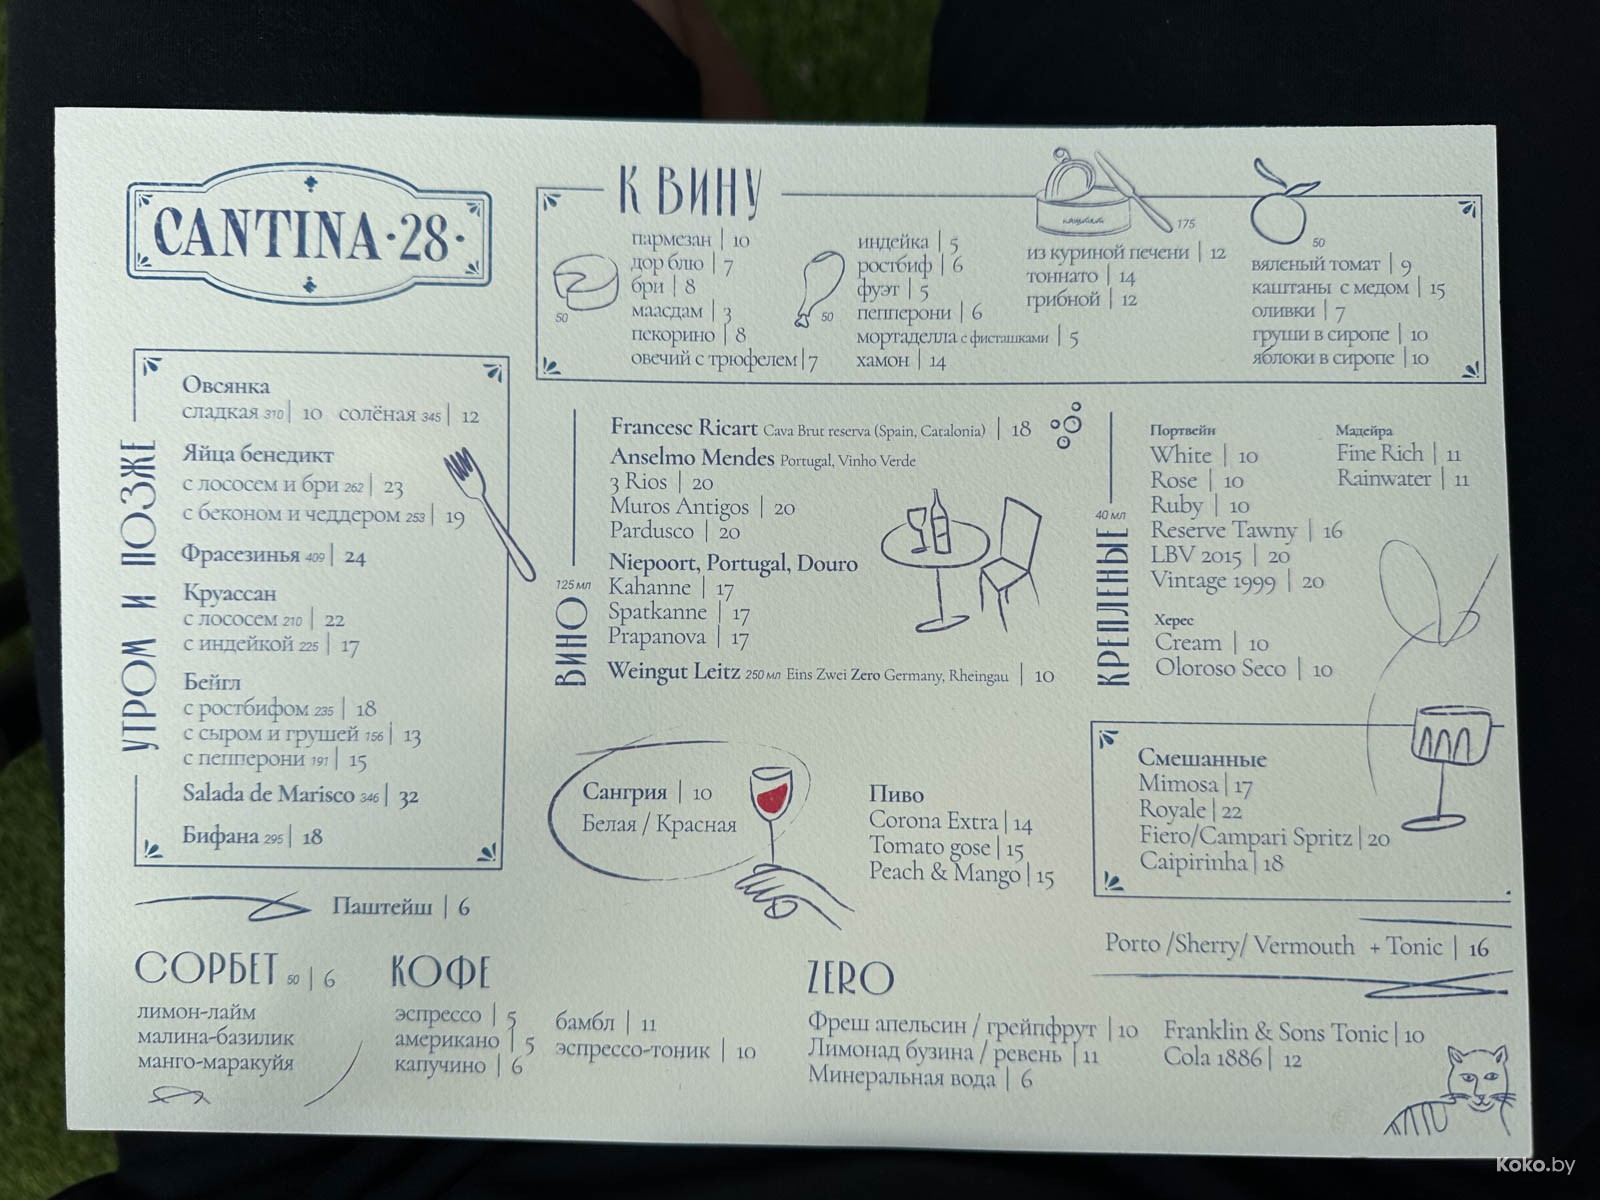 CANTINA ·28·
К ВИНУ
пармезан | 10
дор блю | 7
бри | 8
маасдам | 3
пекорино | 8
овечий с трюфелем | 7
50
индейка | 5
ростбиф | 6
фуэт | 5
пепперони | 6
мортаделла с фисташками | 5
хамон | 14
50
175
из куриной печени | 12
тоннато | 14
грибной | 12
50
вяленый томат | 9
каштаны с медом | 15
оливки | 7
груши в сиропе | 10
яблоки в сиропе | 10
УТРОМ И ПОЗЖЕ
Овсянка
сладкая 310 | 10 солёная 345 | 12
Яйца бенедикт
с лососем и бри 262 | 23
с беконом и чеддером 253 | 19
Фрасезинья 409 | 24
Круассан
с лососем 210 | 22
с индейкой 225 | 17
Бейгл
с ростбифом 235 | 18
с сыром и грушей 156 | 13
с пепперони 191 | 15
Salada de Marisco 346 | 32
Бифана 295 | 18
Паштейш | 6
125 мл
ВИНО
Francesc Ricart Cava Brut reserva (Spain, Catalonia) | 18
Anselmo Mendes Portugal, Vinho Verde
3 Rios | 20
Muros Antigos | 20
Pardusco | 20
Niepoort, Portugal, Douro
Kahanne | 17
Spatkanne | 17
Prapanova | 17
Weingut Leitz 250 мл Eins Zwei Zero Germany, Rheingau | 10
40 мл
КРЕПЛЕНЫЕ
Портвейн
White | 10
Rose | 10
Ruby | 10
Reserve Tawny | 16
LBV 2015 | 20
Vintage 1999 | 20
Мадейра
Fine Rich | 11
Rainwater | 11
Херес
Cream | 10
Oloroso Seco | 10
Сангрия | 10
Белая / Красная
Пиво
Corona Extra | 14
Tomato gose | 15
Peach & Mango | 15
Смешанные
Mimosa | 17
Royale | 22
Fiero/Campari Spritz | 20
Caipirinha | 18
Porto /Sherry/ Vermouth + Tonic | 16
СОРБЕТ 50 | 6
лимон-лайм
малина-базилик
манго-маракуйя
КОФЕ
эспрессо | 5
американо | 5
капучино | 6
бамбл | 11
эспрессо-тоник | 10
ZERO
Фреш апельсин / грейпфрут | 10
Лимонад бузина / ревень | 11
Минеральная вода | 6
Franklin & Sons Tonic | 10
Cola 1886 | 12
Koko.by